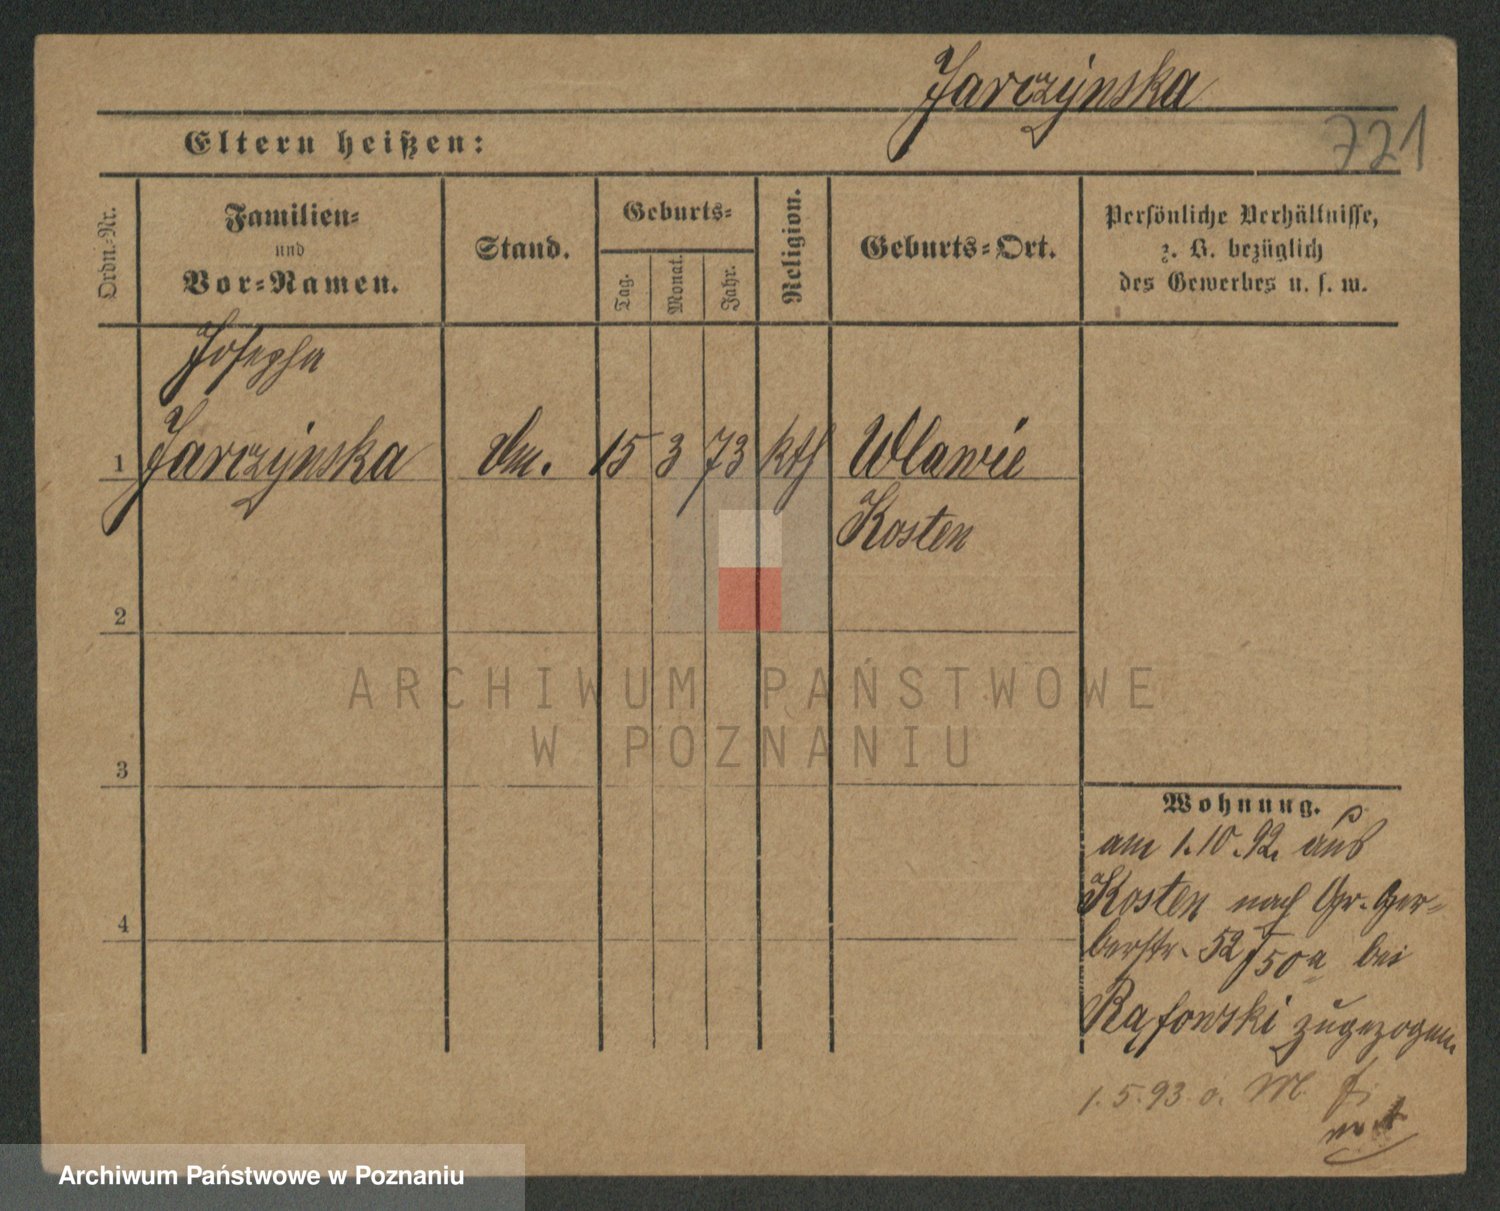 Jarczynska
721
Eltern heißen:
Ordn.-Nr.
Familien-
und
Vor-Namen.
Stand.
Geburts-
Tag.
Monat.
Jahr.
Religion.
Geburts-Ort.
Persönliche Verhältnisse,
z. B. bezüglich
des Gewerbes u. s. w.
Josepha
1 Jarczynska 15 3 73 kth Wlawie
Kosten
2
3
4
ARCHIWUM PAŃSTWOWE
W POZNANIU
Wohnung.
am 1.10.92. aus
Kosten nach Gr. Ger-
berstr. 52/50a bei
zugezogen.
1.5.93 o. M.
Archiwum Państwowe w Poznaniu